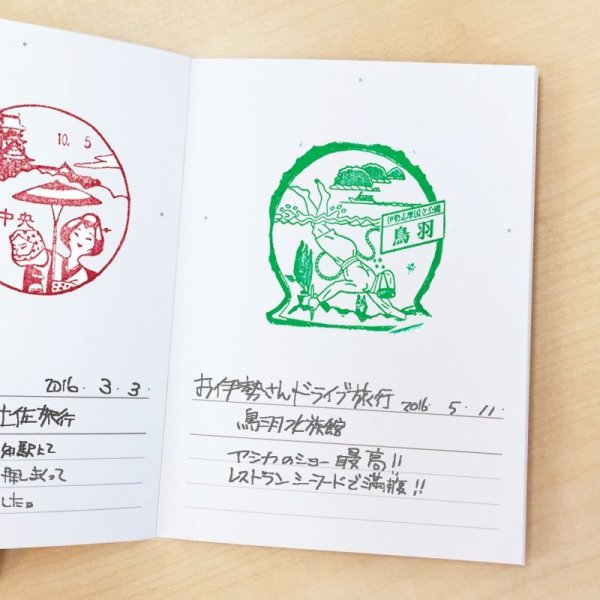 10.5
中央
2016.3.3.
土佐旅行
知駅上で
探しまくって
した。
伊勢志摩国立公園
鳥羽
お伊勢さんドライブ旅行 2016.5.11.
鳥羽水族館
アシカのショー最高!!
レストランシーフードで満腹!!